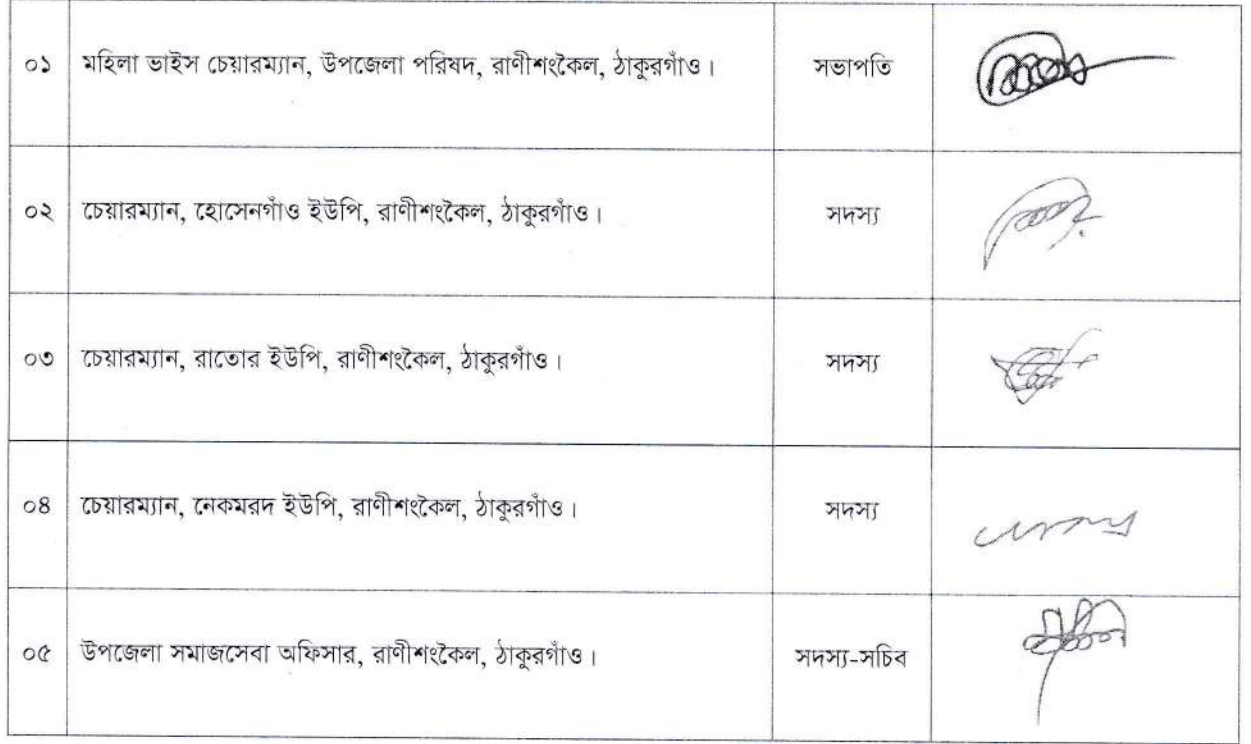 ০১ মহিলা ভাইস চেয়ারম্যান, উপজেলা পরিষদ, রাণীশংকৈল, ঠাকুরগাঁও। সভাপতি
০২ চেয়ারম্যান, হোসেনগাঁও ইউপি, রাণীশংকৈল, ঠাকুরগাঁও। সদস্য
০৩ চেয়ারম্যান, রাতোর ইউপি, রাণীশংকৈল, ঠাকুরগাঁও। সদস্য
০৪ চেয়ারম্যান, নেকমরদ ইউপি, রাণীশংকৈল, ঠাকুরগাঁও। সদস্য
০৫ উপজেলা সমাজসেবা অফিসার, রাণীশংকৈল, ঠাকুরগাঁও। সদস্য-সচিব